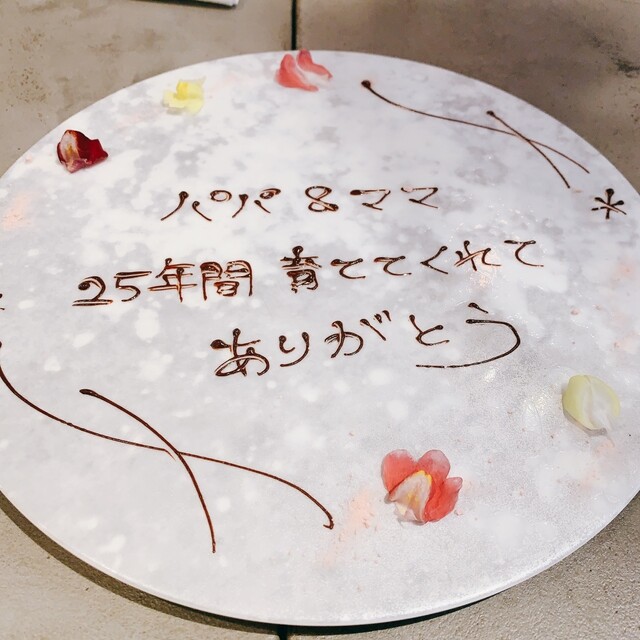 パパ&ママ
25年間 育ててくれて
ありがとう